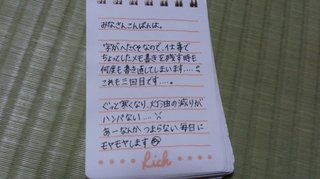 みなさんこんばんは。
字がへたくそなので、仕事で
ちょっとしたメモ書きを残す時も
何度も書き直してしまいます....
これも三回目です....。
ぐっと寒くなり、灯油の減りが
ハンパない....
あーなんかつまらない毎日に
モヤモヤします
Rich